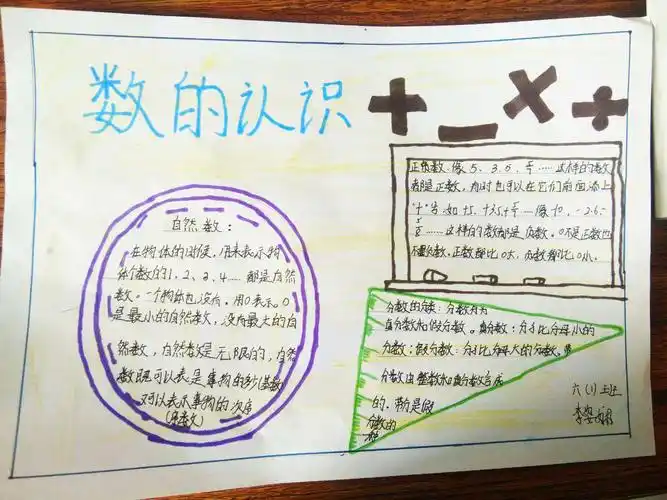 数的认识
+ － × ÷
自然数：
在物体的时候，用来表示物
体个数的1、2、3、4……都是自然
数。一个物体也没有。用0表示。0
是最小的自然数，没有最大的自
然数，自然数是无限的，自然
数既可以表是事物的多少(基数)
又可以表示事物的次序
(序数)
正负数：像5、3.5、……这样的数
都是正数，有时也可以在它们前面添上
"十"号.如+5.
……这样的数都是负数。0不是正数也
不是负数。正数都比0大，负数都比0小。
分数的分类：分数分为
真分数和假分数。真分数：分子比分母小的
分数；假分数：分子比分母大的分数。带
分数由整数和真分数合成
的.带分是假
分数的
六(1)班
李